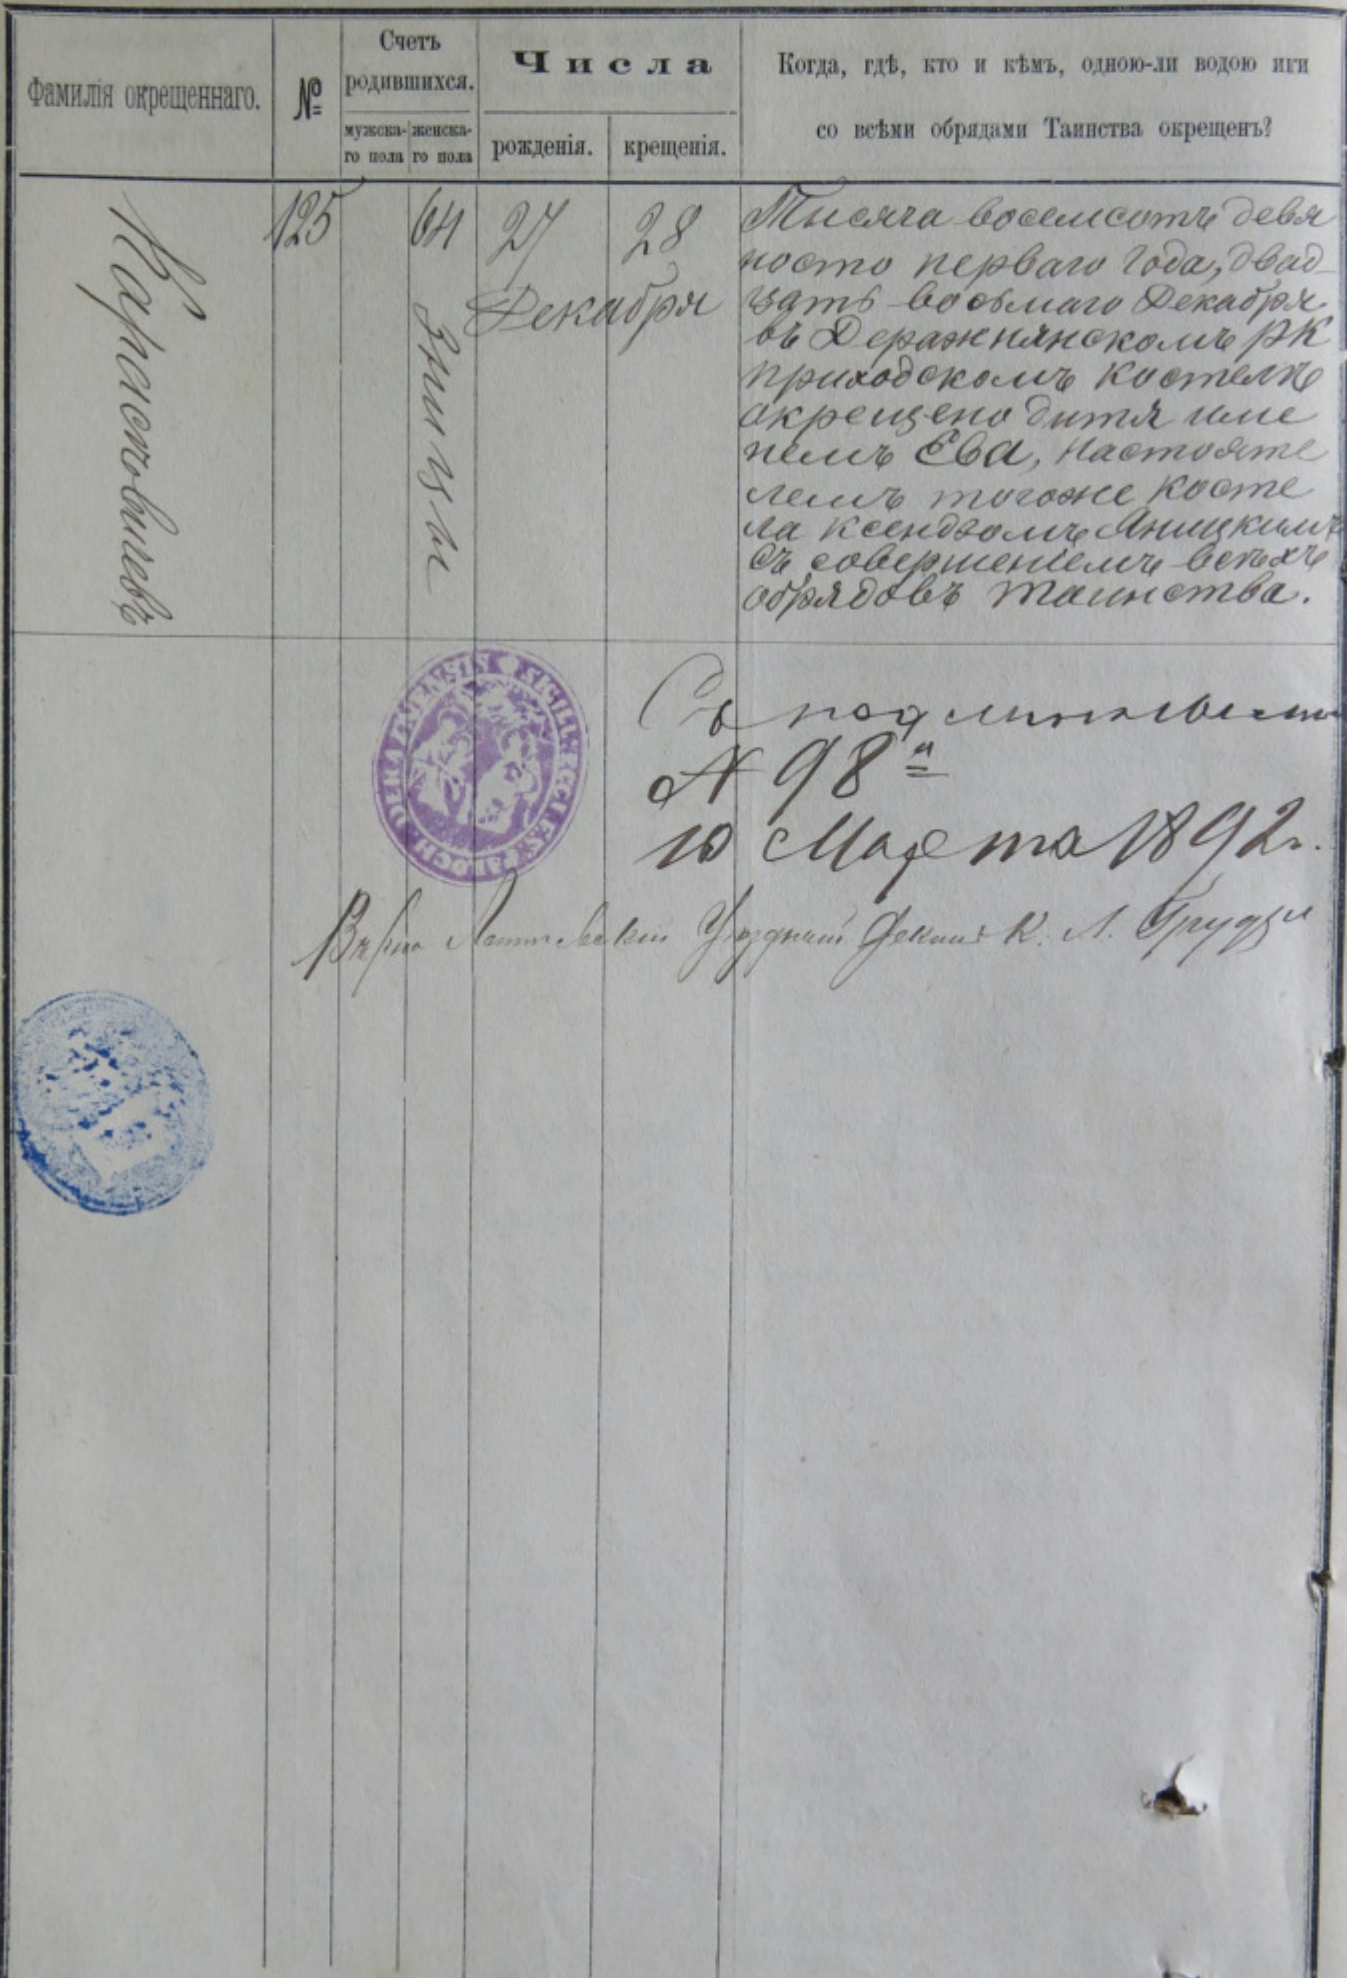 Фамилія окрещеннаго.
№
Счетъ
родившихся.
мужска-
го пола
женска-
го пола
Числа
рожденія.
крещенія.
Когда, гдѣ, кто и кѣмъ, одною-ли водою иги
со всѣми обрядами Таинства окрещенъ?
125
64
27
28
Декабря
Тысяча восемсотъ девя
носто перваго года, двад-
цать восьмаго Декабря
въ Деражнянскомъ РК
приходскомъ костелѣ
окрещено дитя име
немъ Ева, Настояте
лемъ тогоже косте
ла ксендзомъ Яницкимъ
съ совершеніемъ всѣхъ
обрядовъ таинства.
Съ подлиннымъ
№ 98
10 Марта 1892 г.
Вѣрно Уѣздный Деканъ К. Л.
DERAZNENSIS SIGILL